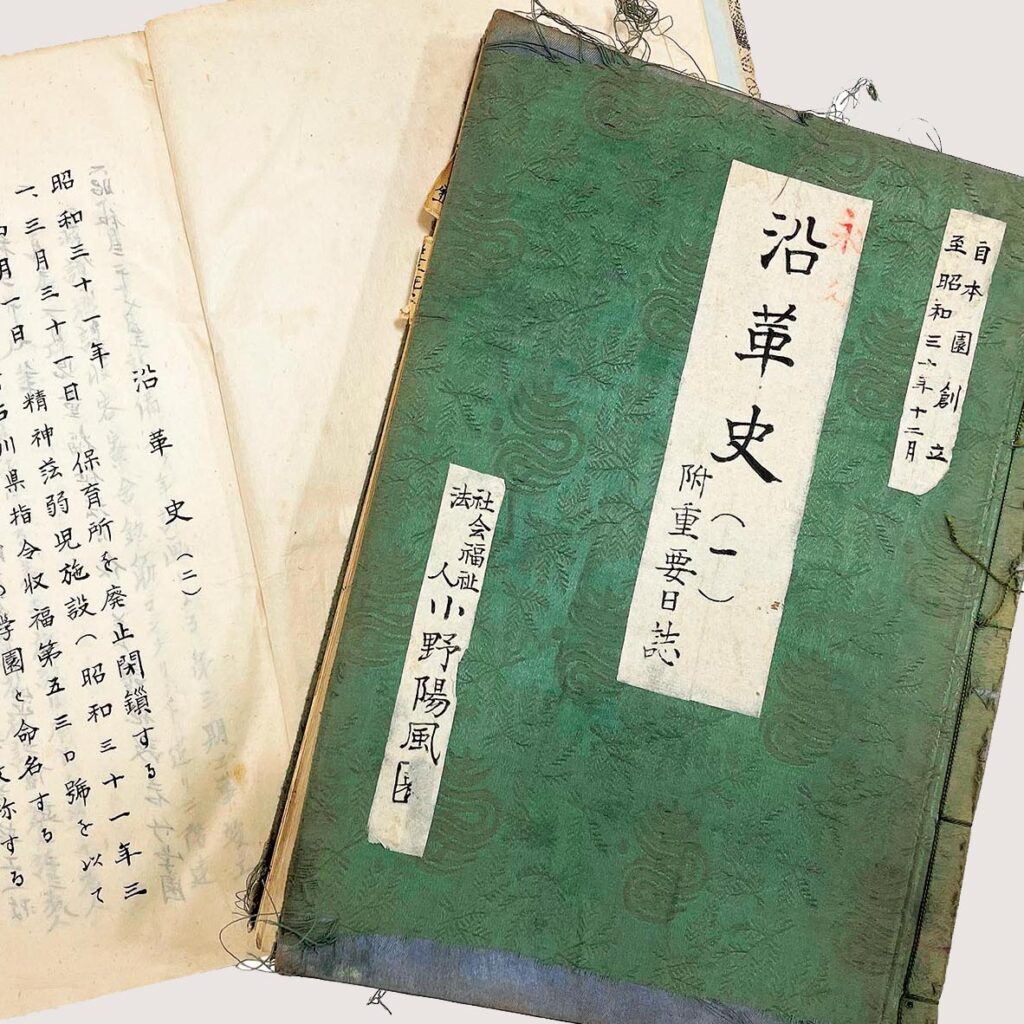 自本園創立
至昭和三十年十二月
永久
沿革史(一)
附重要日誌
社会福祉
法人
小野陽風園
沿革史(二)
昭和三十一年
一、三月三十一日 保育所を廃止閉鎖する
月一日 精神薄弱児施設(昭和三十一年三
石川県指令収福第五三〇號を以て
学園と命名する
称する